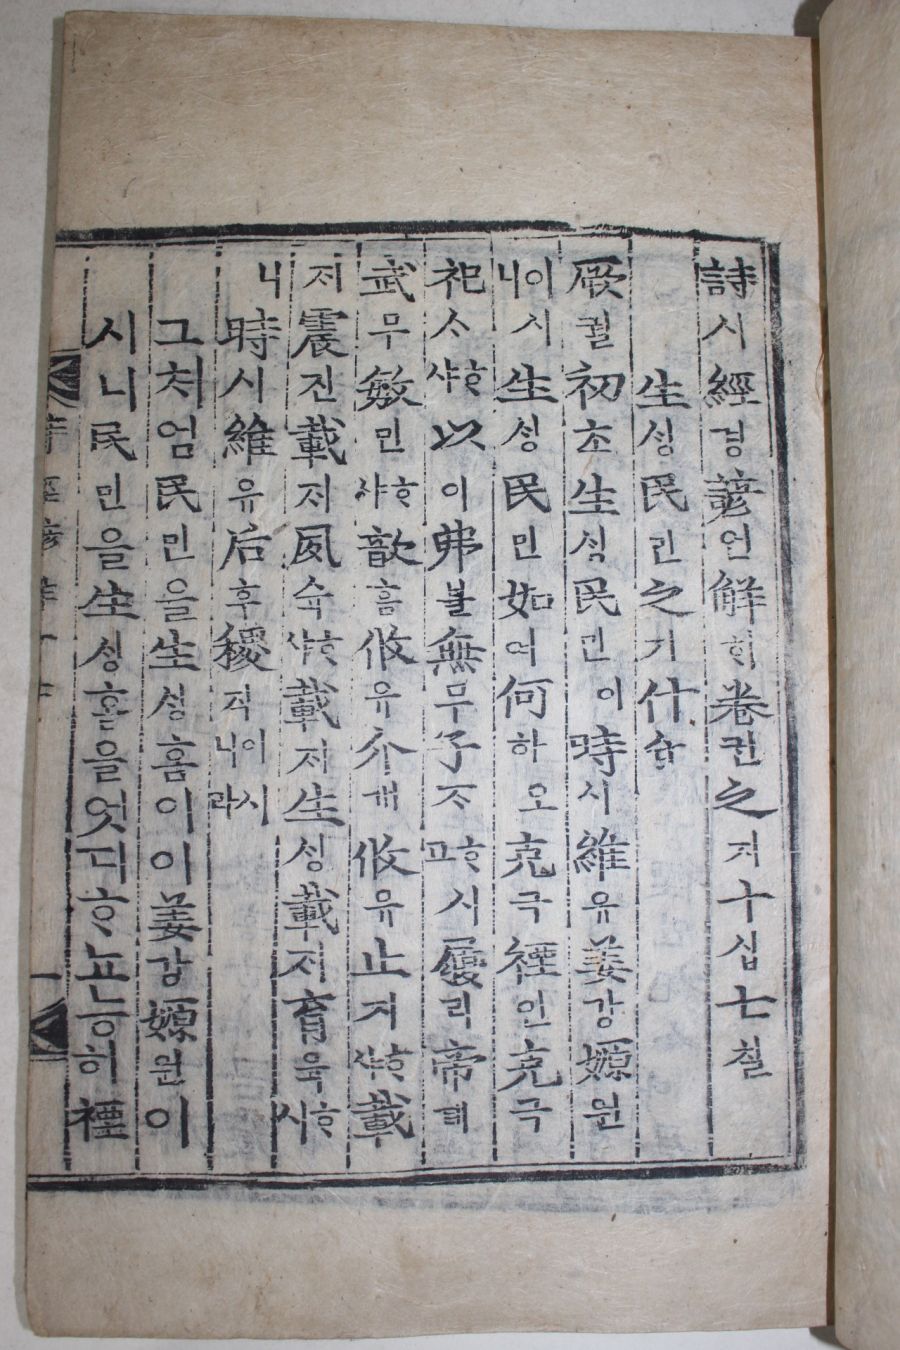 詩시經경諺언解ᄒᆡ卷권之지十십七칠
生싱民민之지什습
厥궐初초生싱民민이時시維유姜강嫄원
이시니生싱民민如여何하오克극禋인克극
祀ᄉᆞᄒᆞ샤以이弗불無무子ᄌᆞᄒᆞ시고履리帝뎨
武무敏민ᄒᆞ샤歆흠攸유介개攸유止지ᄒᆞ샤載
저震진載저夙슉ᄒᆞ샤載저生싱載지育육ᄒᆞ시
니時시維유后후稷직이시니라
그처엄民민을生싱홈이이姜강嫄원이
시니民민을生싱홈을엇디ᄒᆞ뇨능히禋